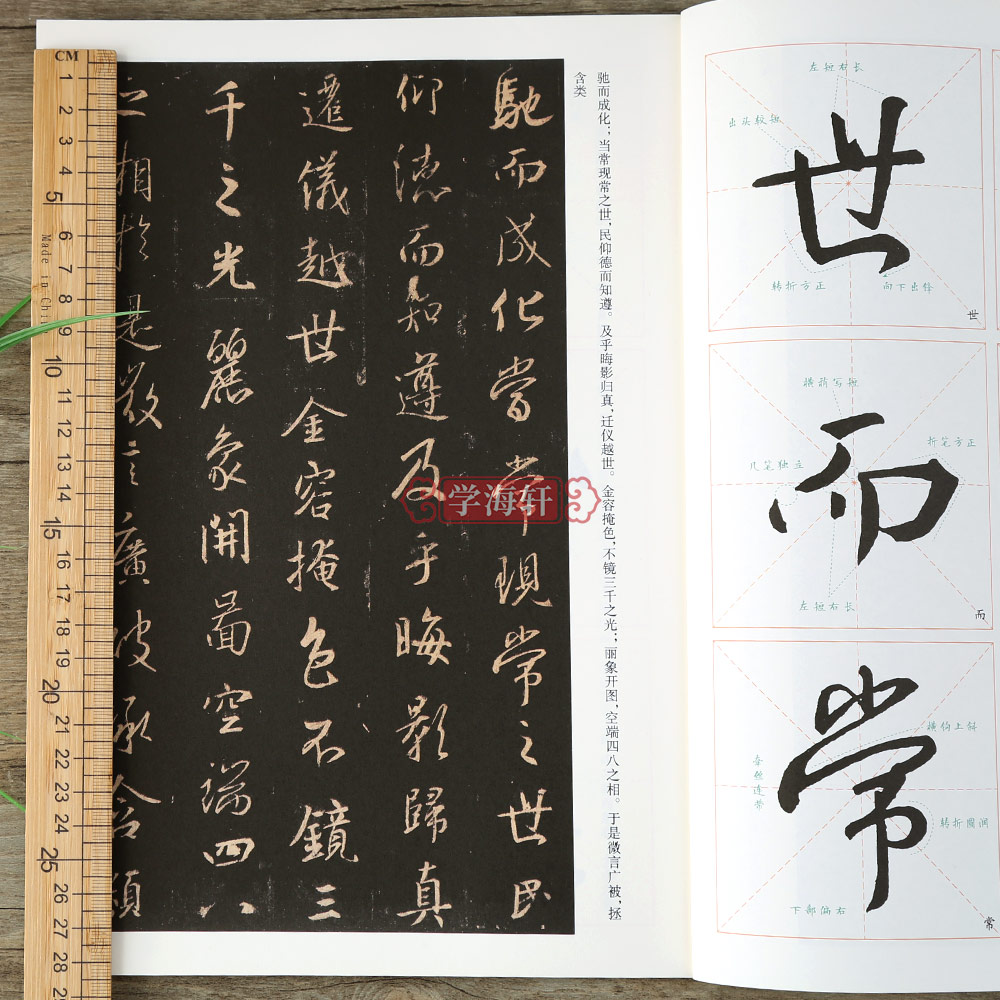 馳而成化當常現常之世民
仰德而知遵及乎晦影歸真
遷儀越世金容掩色不鏡三
千之光麗象開圖空端四八
之相於是微言廣被拯含類
驰而成化；当常现常之世，民仰德而知遵。及乎晦影归真，迁仪越世。金容掩色，不镜三千之光；丽象开图，空端四八之相。于是微言广被，拯
含类
学海轩
左短右长
出头较短
转折方正
向下出锋
世
横稍写短
折笔方正
几笔独立
左短右长
而
横向上斜
牵丝连带
转折圆润
下部偏右
常
CM
1
2
3
4
5
6
7
8
9
10
11
12
13
14
15
16
17
18
19
20
21
22
23
24
25
26
27
28
Made in Chi